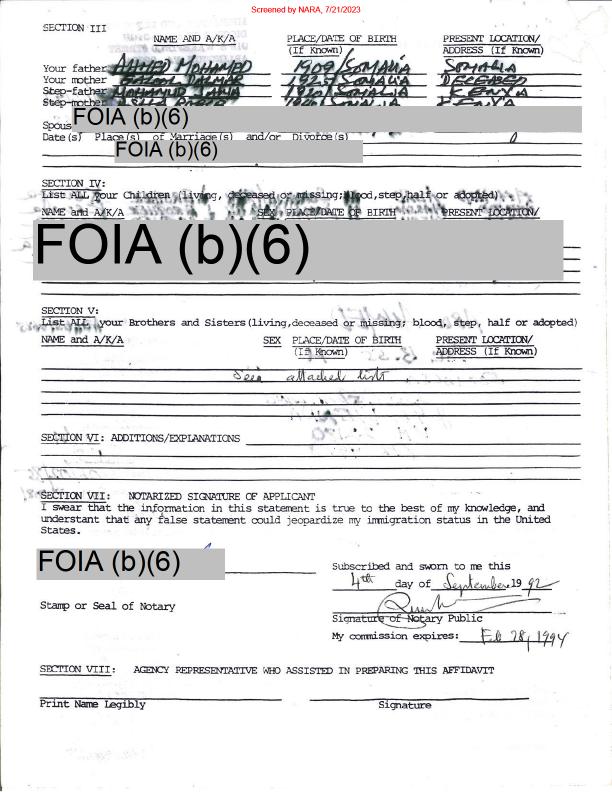 Screened by NARA, 7/21/2023
SECTION III
NAME AND A/K/A PLACE/DATE OF BIRTH PRESENT LOCATION/
(If Known) ADDRESS (If Known)
Your father AHMED MOHAMED 1909/SOMALIA SOMALIA
Your mother 1925/SOMALIA DECEASED
Step-father MOHAMUD JAMA SOMALIA KENYA
Step-mother SOMALIA KENYA
Spous FOIA (b)(6)
Date(s) Place(s) of Marriage(s) and/or Divorce(s)
FOIA (b)(6)
SECTION IV:
List ALL your Children (living, deceased or missing;blood,step,half or adopted)
NAME and A/K/A SEX PLACE/DATE OF BIRTH PRESENT LOCATION/
FOIA (b)(6)
SECTION V:
List ALL your Brothers and Sisters(living,deceased or missing; blood, step, half or adopted)
NAME and A/K/A SEX PLACE/DATE OF BIRTH PRESENT LOCATION/
(If Known) ADDRESS (If Known)
attached list
SECTION VI: ADDITIONS/EXPLANATIONS
SECTION VII: NOTARIZED SIGNATURE OF APPLICANT
I swear that the information in this statement is true to the best of my knowledge, and
understant that any false statement could jeopardize my immigration status in the United
States.
FOIA (b)(6)
Subscribed and sworn to me this
4th day of September 19 92
Stamp or Seal of Notary
Signature of Notary Public
My commission expires: Feb 28, 1994
SECTION VIII: AGENCY REPRESENTATIVE WHO ASSISTED IN PREPARING THIS AFFIDAVIT
Print Name Legibly Signature